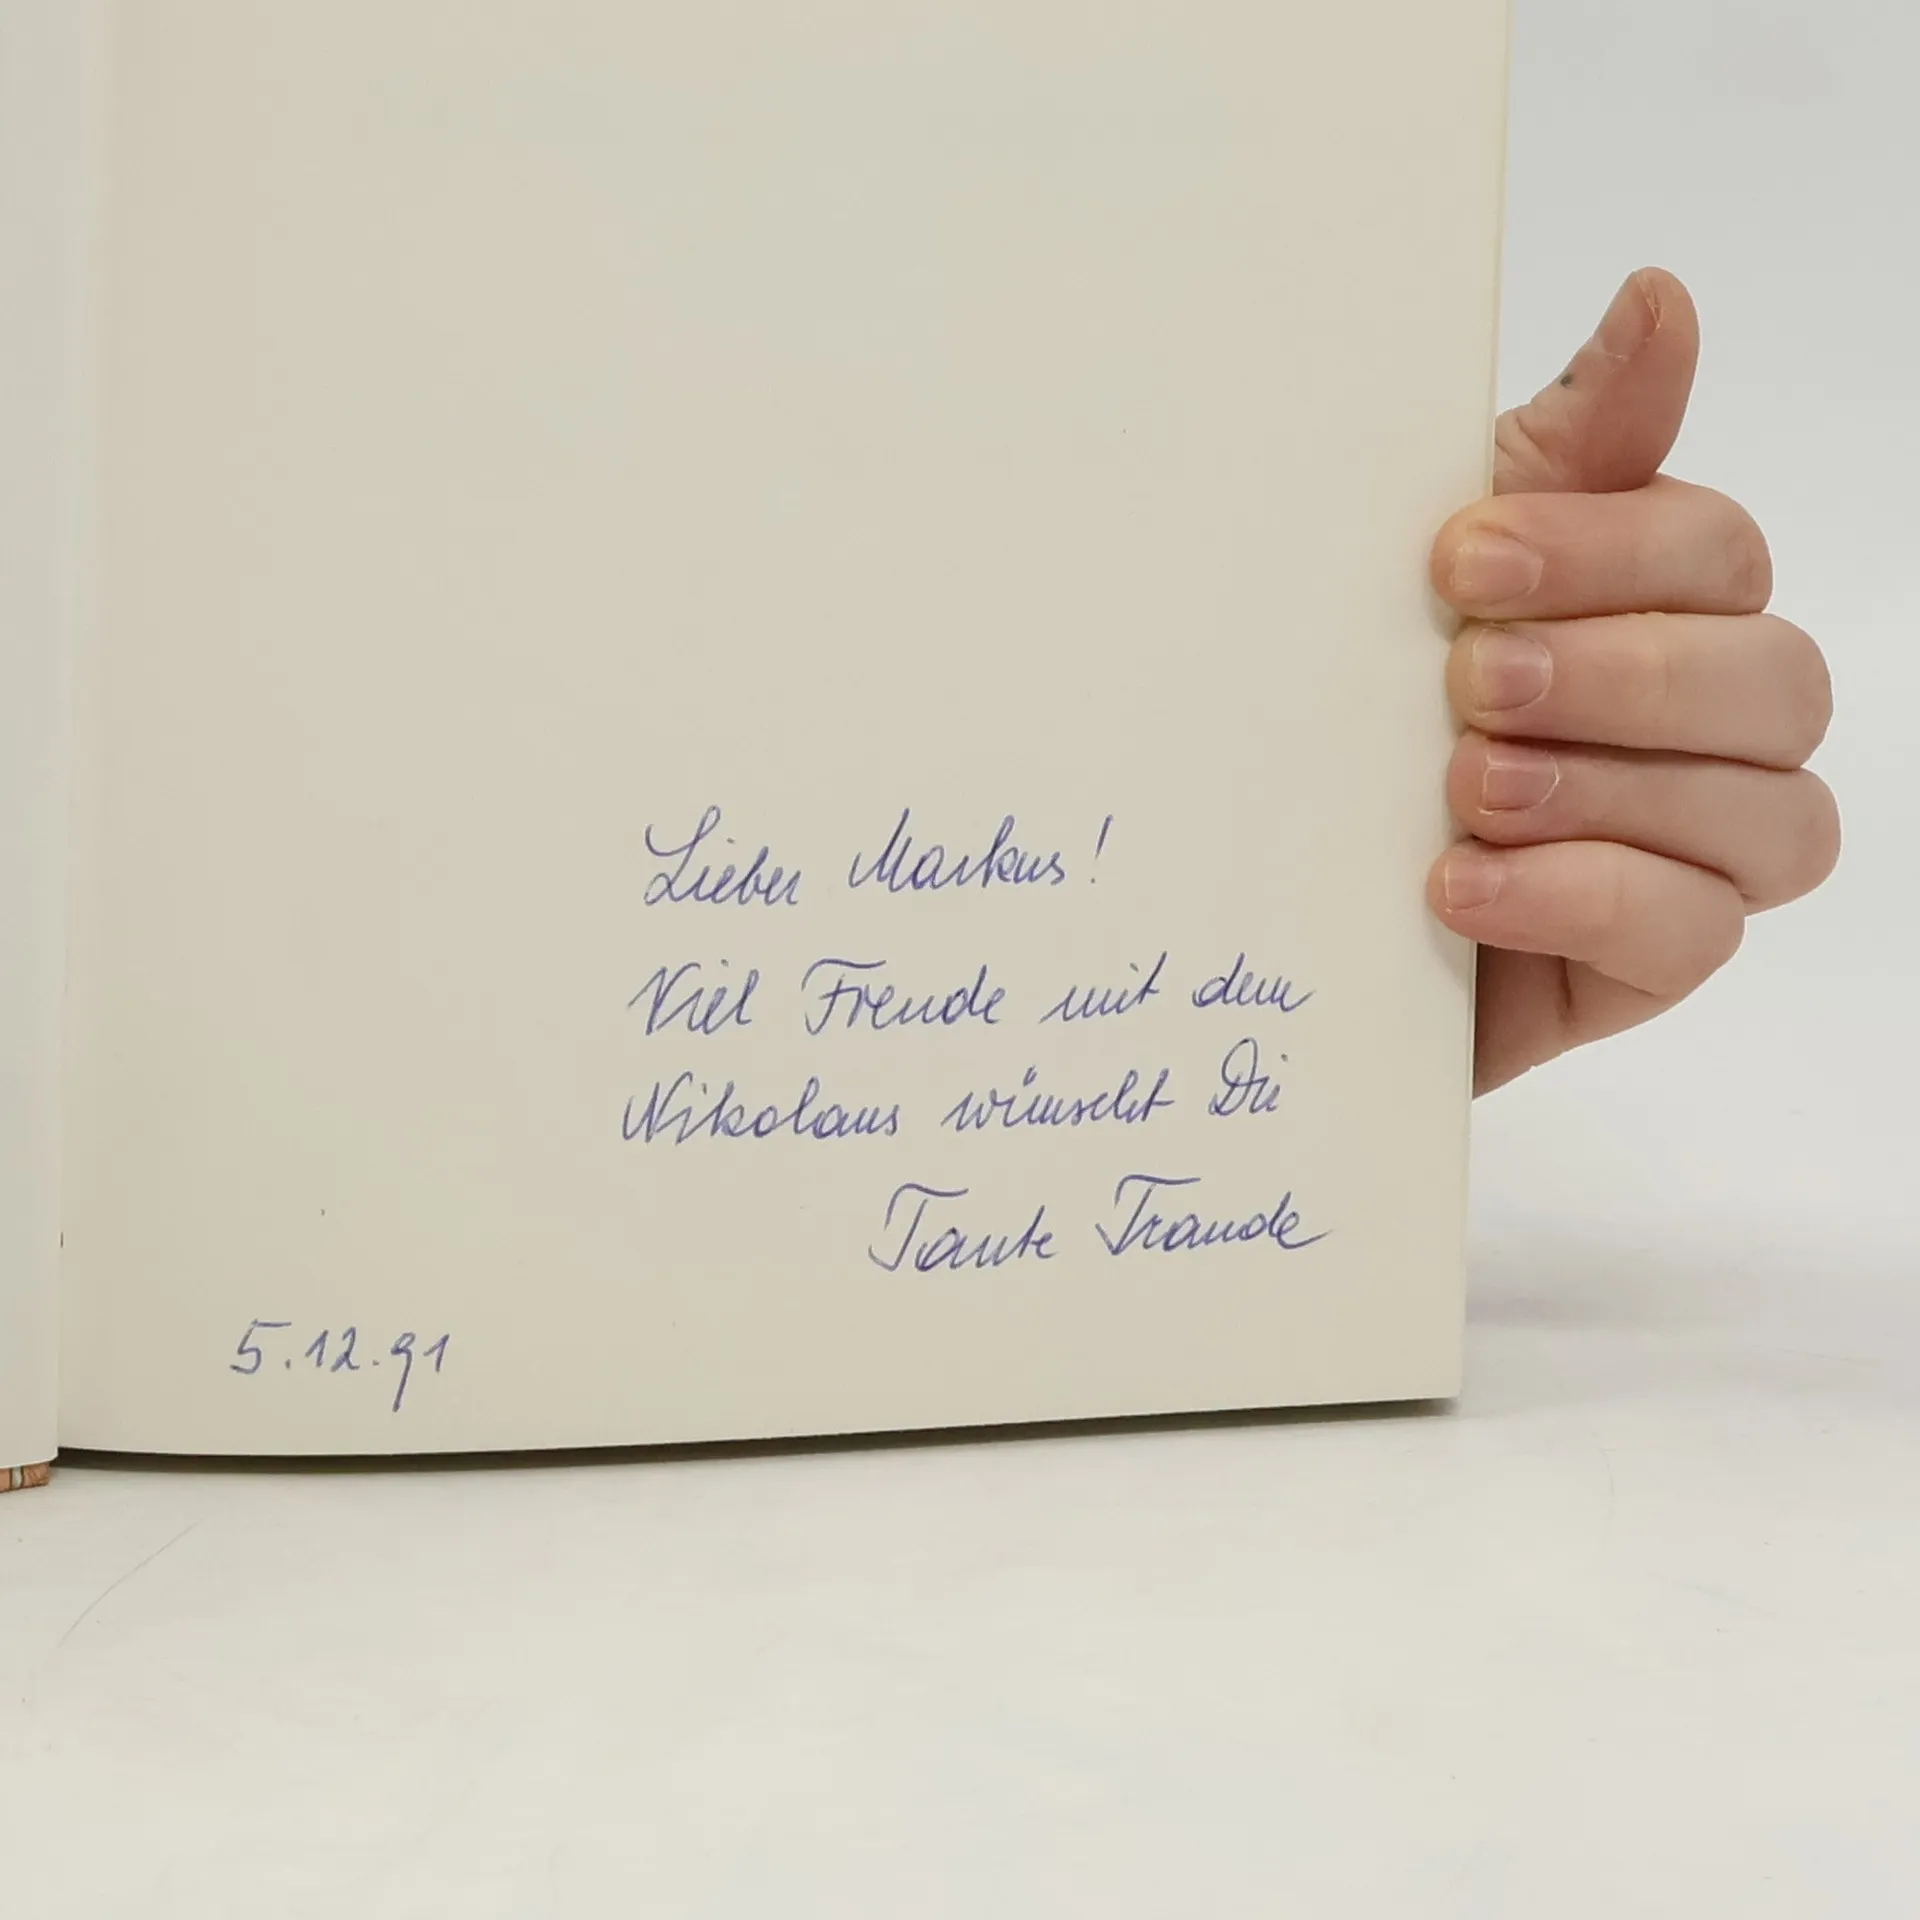 Lieber Markus!
Viel Freude mit dem
Nikolaus wünscht Dir
Tante Traude
5.12.91